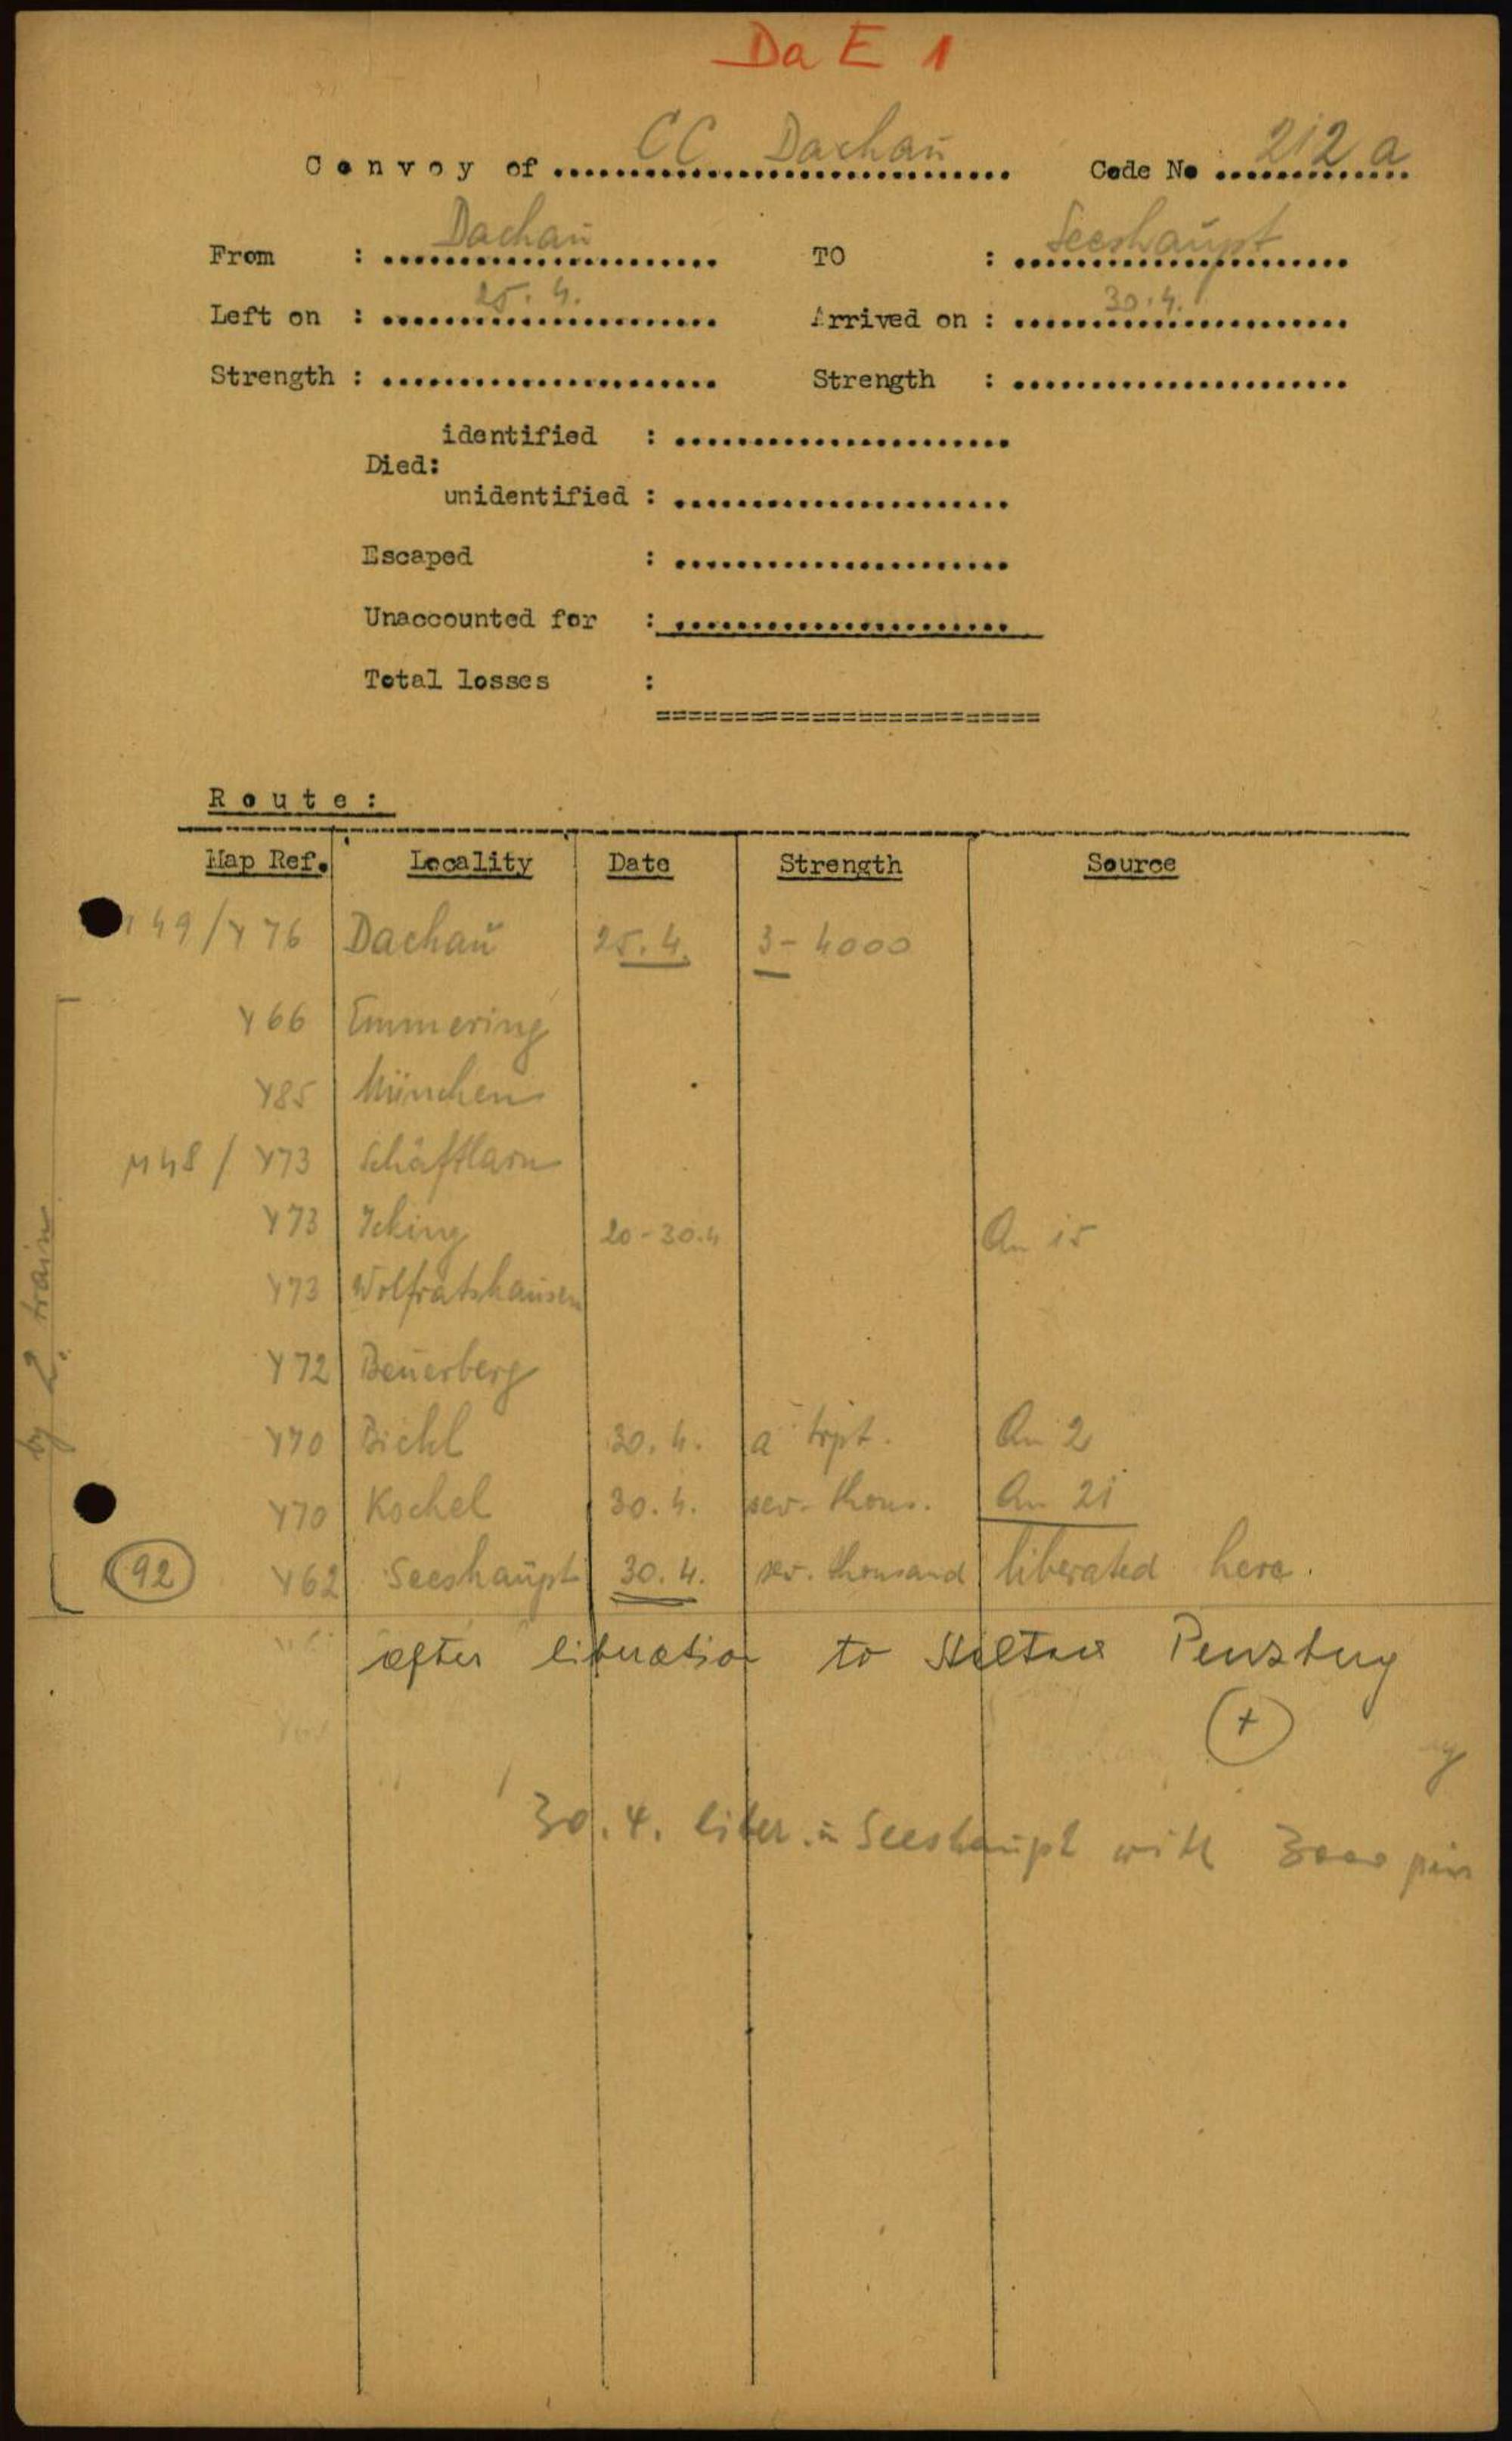 Da E 1
Convoy of CC Dachau Code No 212 a
From : Dachau TO : Seeshaupt
Left on : 25.4. Arrived on : 30.4.
Strength : Strength :
identified :
Died:
unidentified :
Escaped :
Unaccounted for :
Total losses :
Route:
Map Ref. Locality Date Strength Source
49/Y 76 Dachau 25.4. 3-4000
Y 66 Emmering
Y85 München
M48 / Y73 Schäftlarn
Y73 Icking 20-30.4 An 15
Y73 Wolfratshausen
Y72 Beuerberg
Y70 Bichl 30.4. a trpt. An 2
Y70 Kochel 30.4. sev. thous. An 21
92 Y62 Seeshaupt 30.4. sev. thousand liberated here.
by train
after liberation to Penzberg
+
30.4. liber. in Seeshaupt with 3000